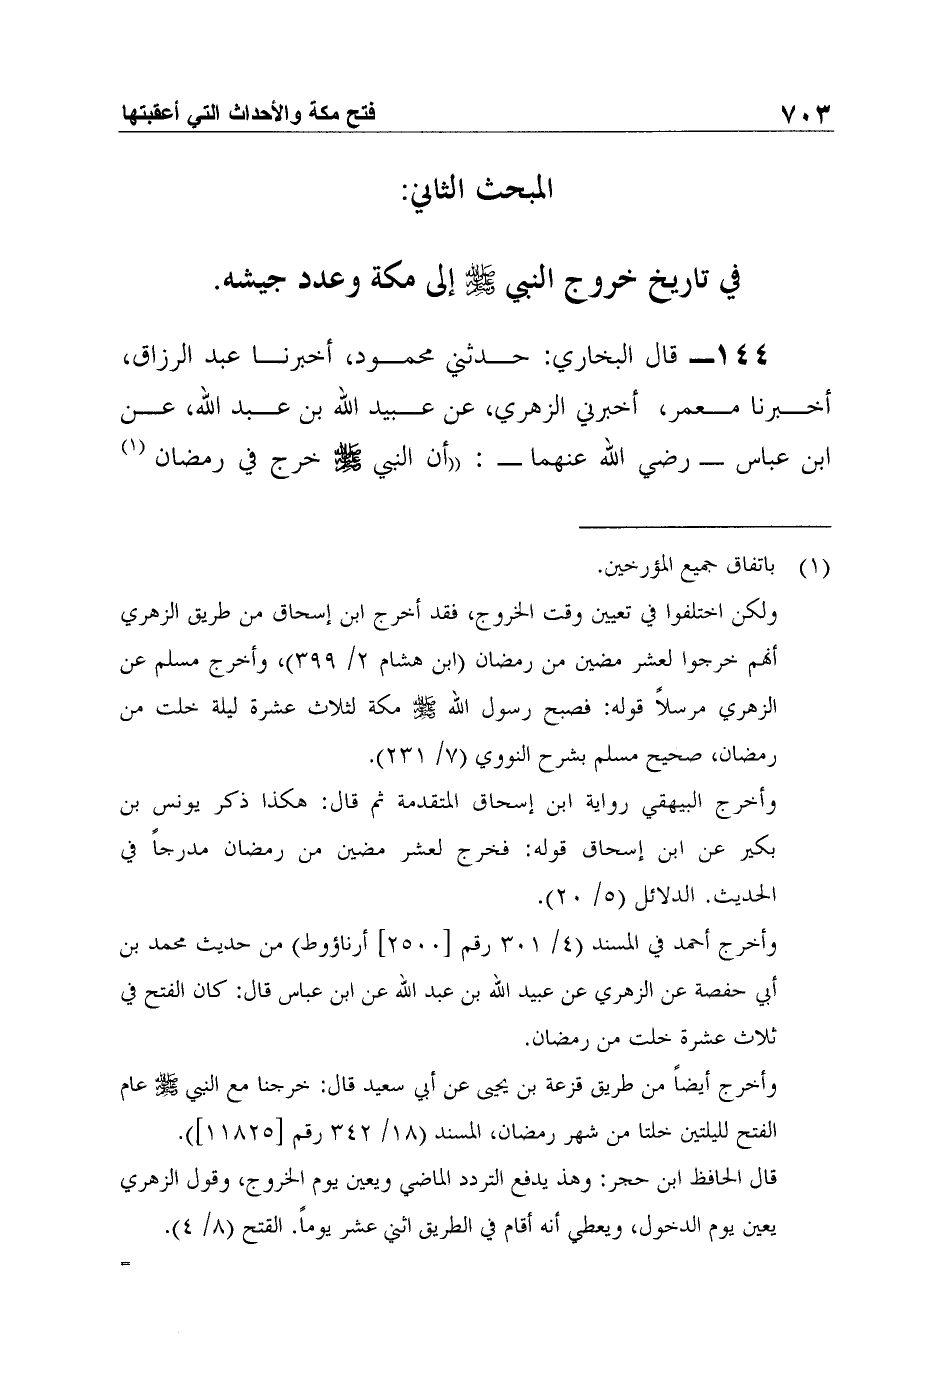 ٧٠٣ فتح مكة والأحداث التي أعقبتها
المبحث الثاني:
في تاريخ خروج النبي ﷺ إلى مكة وعدد جيشه.
١٤٤ــ قال البخاري: حــدثني محمــود، أخبرنــا عبد الرزاق،
أخـــبرنا مـعمر، أخبرني الزهري، عن عــبيد الله بن عــبد الله، عــن
ابن عباس ــ رضي الله عنهما ــ : ((أن النبي ﷺ خرج في رمضان (١)
(١) باتفاق جميع المؤرخين.
ولكن اختلفوا في تعيين وقت الخروج، فقد أخرج ابن إسحاق من طريق الزهري
أنهم خرجوا لعشر مضين من رمضان (ابن هشام ٢/ ٣٩٩)، وأخرج مسلم عن
الزهري مرسلاً قوله: فصبح رسول الله ﷺ مكة لثلاث عشرة ليلة خلت من
رمضان، صحيح مسلم بشرح النووي (٧/ ٢٣١).
وأخرج البيهقي رواية ابن إسحاق المتقدمة ثم قال: هكذا ذكر يونس بن
بكير عن ابن إسحاق قوله: فخرج لعشر مضين من رمضان مدرجاً في
الحديث. الدلائل (٥/ ٢٠).
وأخرج أحمد في المسند (٤/ ٣٠١ رقم [٢٥٠٠] أرناؤوط) من حديث محمد بن
أبي حفصة عن الزهري عن عبيد الله بن عبد الله عن ابن عباس قال: كان الفتح في
ثلاث عشرة خلت من رمضان.
وأخرج أيضاً من طريق قزعة بن يحيى عن أبي سعيد قال: خرجنا مع النبي ﷺ عام
الفتح لليلتين خلتا من شهر رمضان، المسند (١٨/ ٣٤٢ رقم [١١٨٢٥]).
قال الحافظ ابن حجر: وهذ يدفع التردد الماضي ويعين يوم الخروج، وقول الزهري
يعين يوم الدخول، ويعطي أنه أقام في الطريق اثني عشر يوماً. الفتح (٨/ ٤).
=